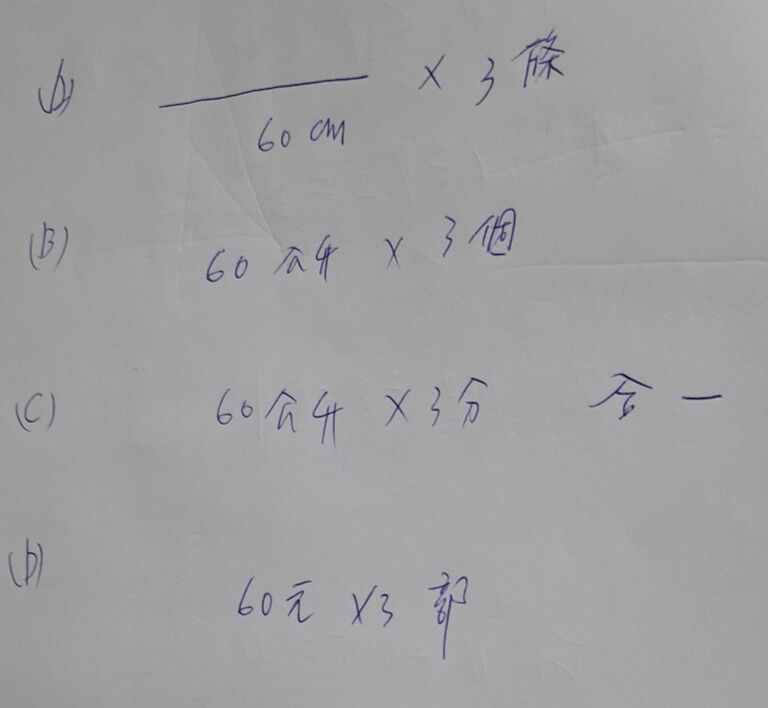 (A) × 3 條
60 cm
(B) 60 公升 × 3 個
(C) 60 公升 × 3 分 合一
(D) 60 元 × 3 部